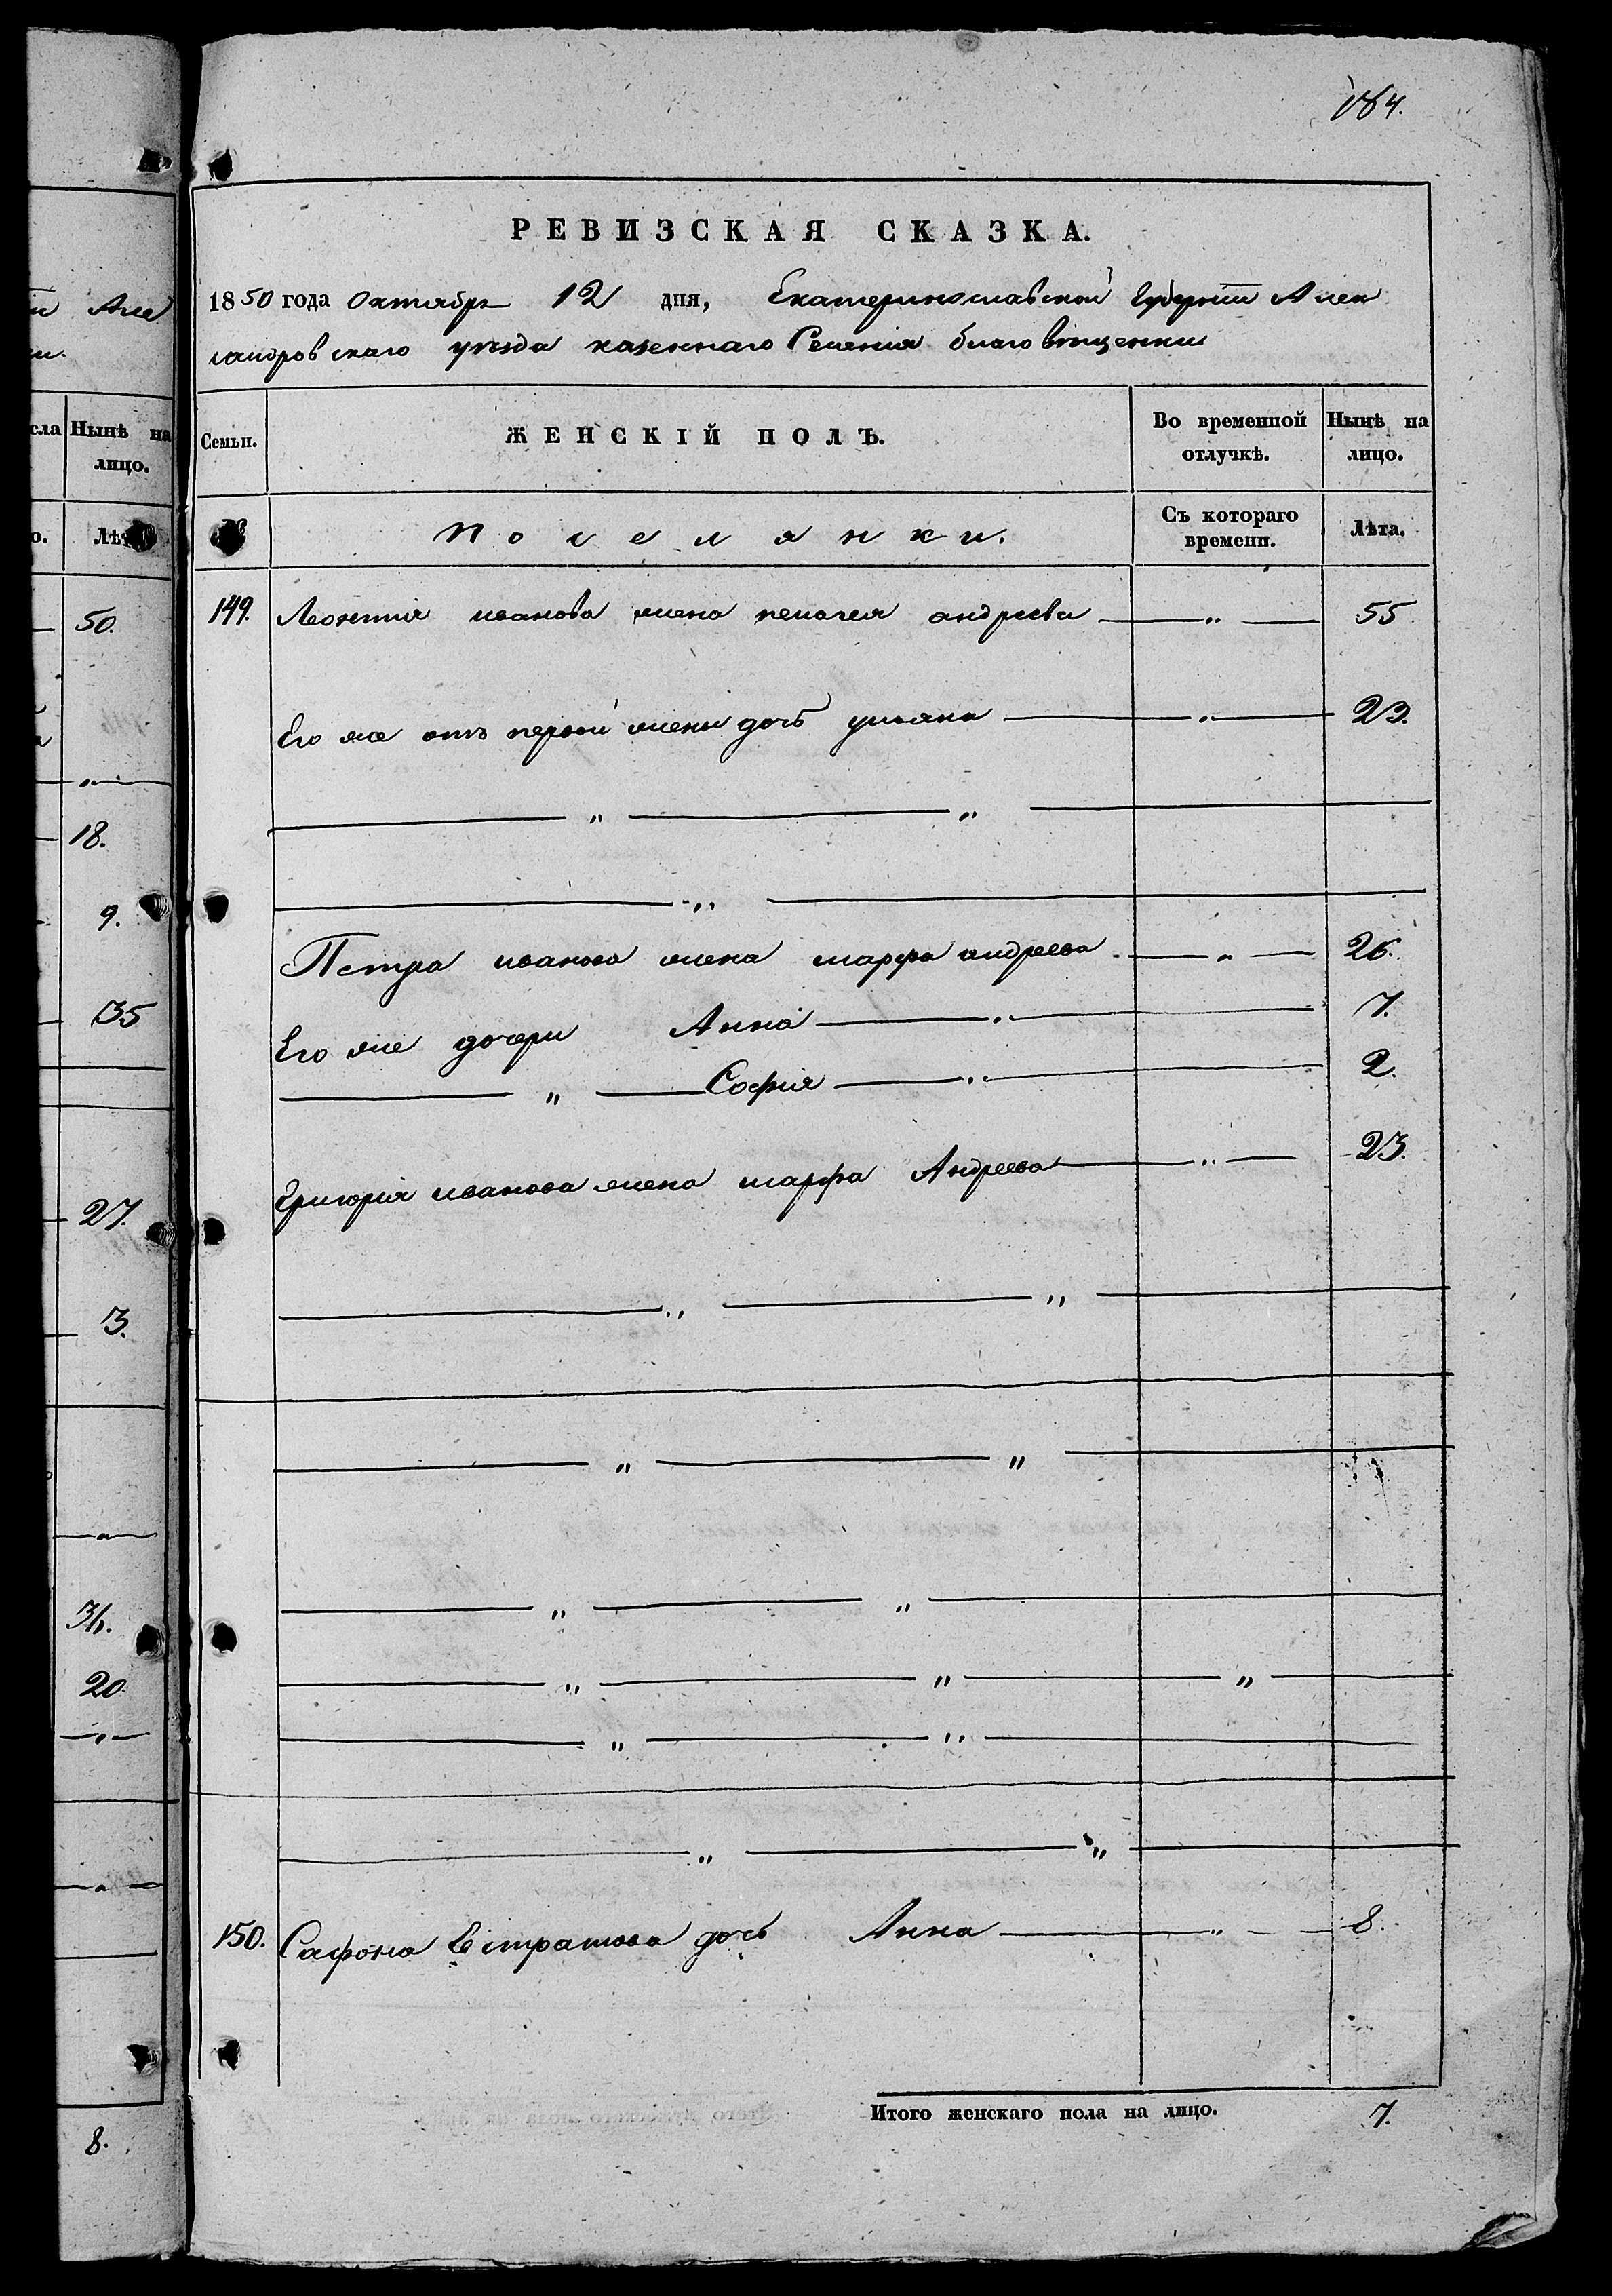 184.
РЕВИЗСКАЯ СКАЗКА.
1850 года Октября 12 дня, Екатеринославской Губернии Алек
сандровскаго уезда казеннаго Селения благовещенки
Семьи.
ЖЕНСКІЙ ПОЛЪ.
Во временной отлучкѣ.
Нынѣ на лицо.
Поселянки.
Съ котораго времени.
Лѣта.
149. Леонтия иванова жена пелагея андреева — " — 55
Его же отъ первой жены дочь ульяна — " — 23.
— " — " —
— " —
Петра иванова жена марфа андреева — " — 26.
Его же дочери Анна — " — 7.
— " — София — " — 2.
Григория иванова жена марфа Андреева — " — 23.
— " — " —
— " — " —
— " — " —
— " — " — " —
— " — " —
— " — " —
150. Сафона Естратова дочь Анна — " — 8.
Итого женскаго пола на лицо. 7.
Але
сла
Нынѣ на
лицо.
50.
18.
9.
35
27.
3.
20
8.